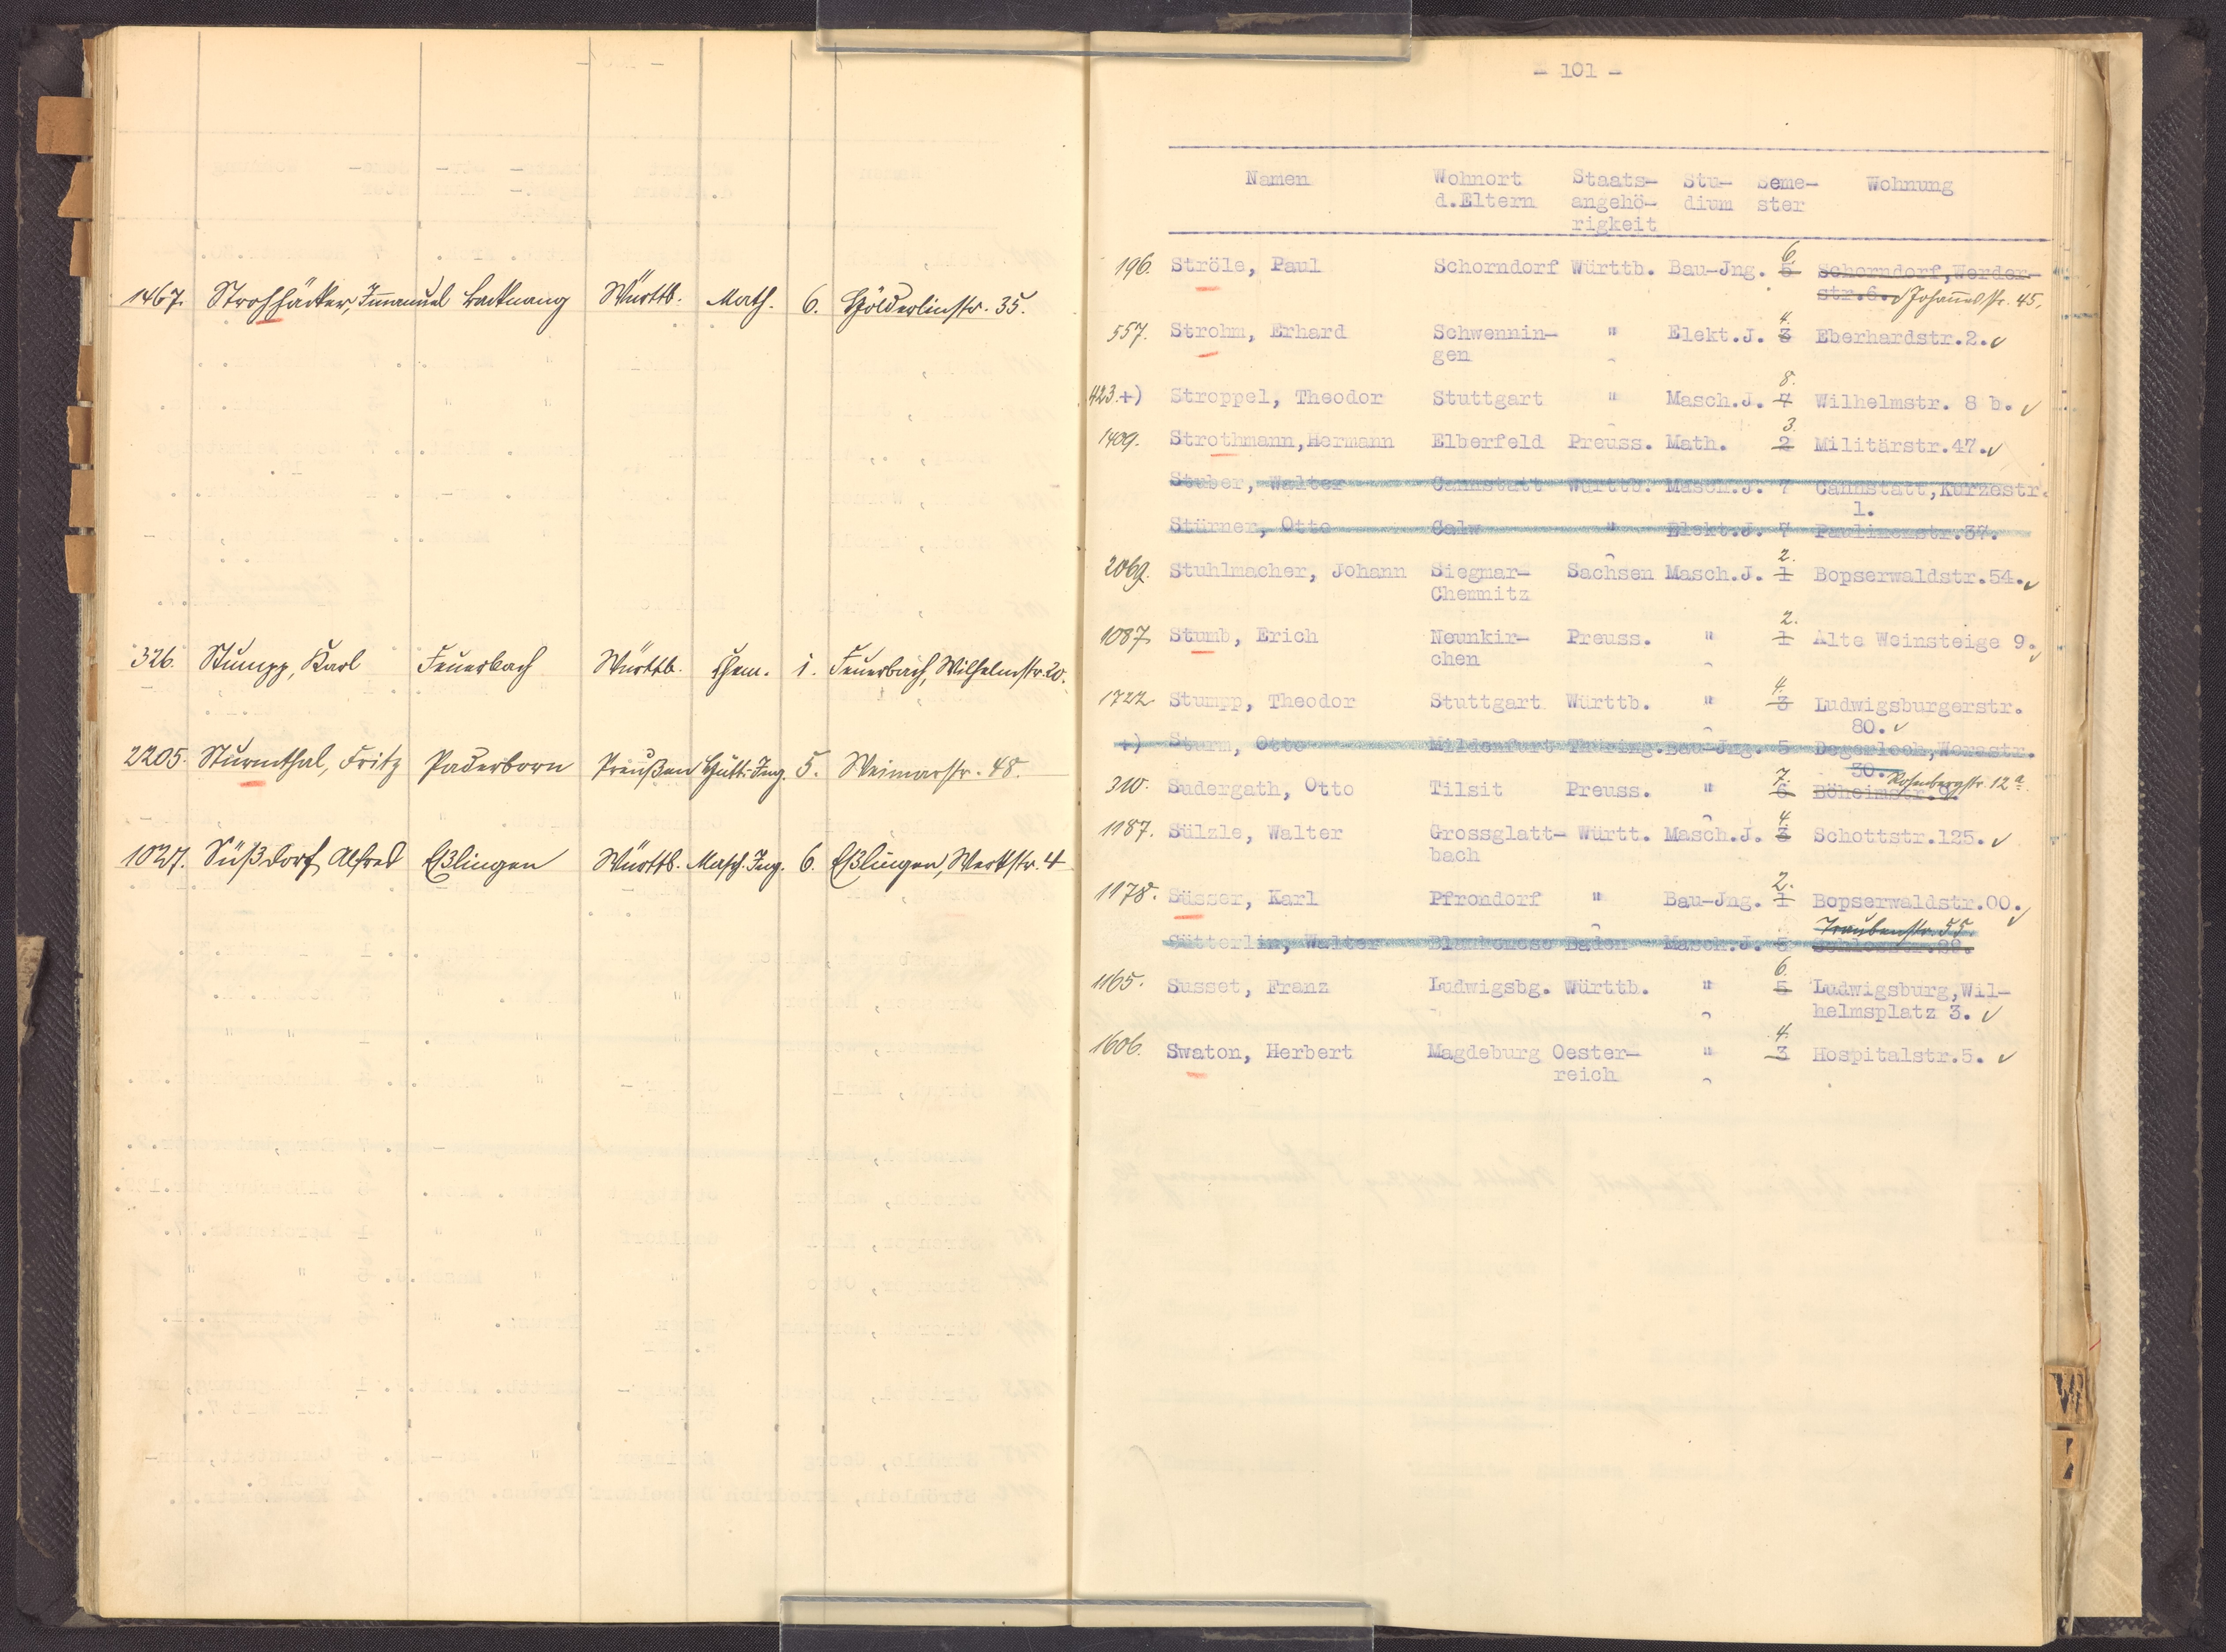 1467. Strohhäcker, Immanuel Backnang Württb. Math. 6. Hölderlinstr. 35.
326. Stumpp, Karl Feuerbach Württb. Chem. 1. Feuerbach, Wilhelmstr. 20.
2205. Sturmthal, Fritz Paderborn Preußen Hütt.-Ing. 5. Weimarstr. 48.
1027. Süßdorf, Alfred Eßlingen Württb. Masch. Ing. 6. Eßlingen, Werkstr. 4
- 101 -
Namen Wohnort Staats- Stu- Seme- Wohnung
d.Eltern angehö- dium ster
rigkeit
6
196. Ströle, Paul Schorndorf Württb. Bau-Jng. 5 Schorndorf,Werder-
str.6. Johannesstr. 45.
4.
557. Strohm, Erhard Schwennin- " Elekt.J. 3 Eberhardstr.2.
gen
8.
423.+) Stroppel, Theodor Stuttgart " Masch.J. 7 Wilhelmstr. 8 b.
3.
1409. Strothmann,Hermann Elberfeld Preuss. Math. 2 Militärstr.47.
Stuber, Walter Cannstatt Württb. Masch.J. 7 Cannstatt,Kurzestr.
1.
Stürner, Otto Calw " Elekt.J. 7 Paulinenstr.37.
2.
2069. Stuhlmacher, Johann Siegmar- Sachsen Masch.J. 1 Bopserwaldstr.54.
Chemnitz
2.
1087. Stumb, Erich Neunkir- Preuss. " 1 Alte Weinsteige 9.
chen
4.
1722. Stumpp, Theodor Stuttgart Württb. " 3 Ludwigsburgerstr.
80.
+) Sturm, Otto Mildenfurt Thüring. Bau-Jng. 5 Degerloch,Werastr.
30. Rosenbergstr. 12a.
7.
310. Sudergath, Otto Tilsit Preuss. " 6 Böheimstr.9.
4.
1187. Sülzle, Walter Grossglatt- Württ. Masch.J. 3 Schottstr.125.
bach
2.
1178. Süsser, Karl Pfrondorf " Bau-Jng. 1 Bopserwaldstr.00.
Traubenstr. 55.
Sütterlin, Walter Blankenese Baden Masch.J. 5
6.
1165. Susset, Franz Ludwigsbg. Württb. " 5 Ludwigsburg,Wil-
helmsplatz 3.
4.
1606. Swaton, Herbert Magdeburg Oester- " 3 Hospitalstr.5.
reich
W